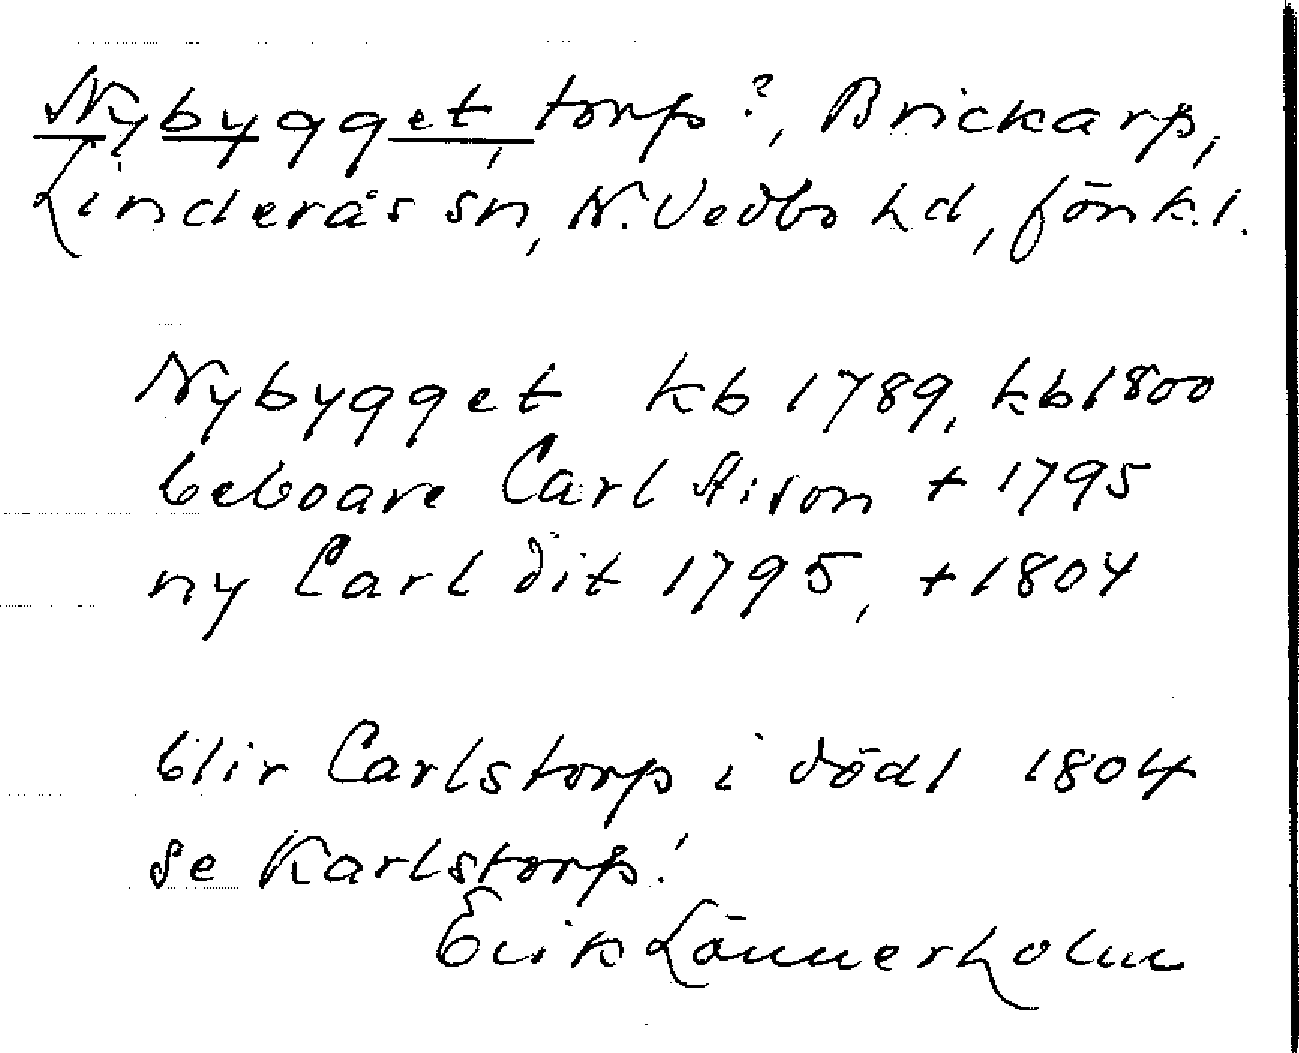 Nybygget, torp?, Brickarp,
Linderås sn, N. Vedbo hd, Jönk.l.
Nybygget kb 1789, kb 1800
beboare Carl +1795
ny Carl dit 1795, +1804
blir Carlstorp i dödl 1804
se Karlstorp!
Erik Lönnerholm